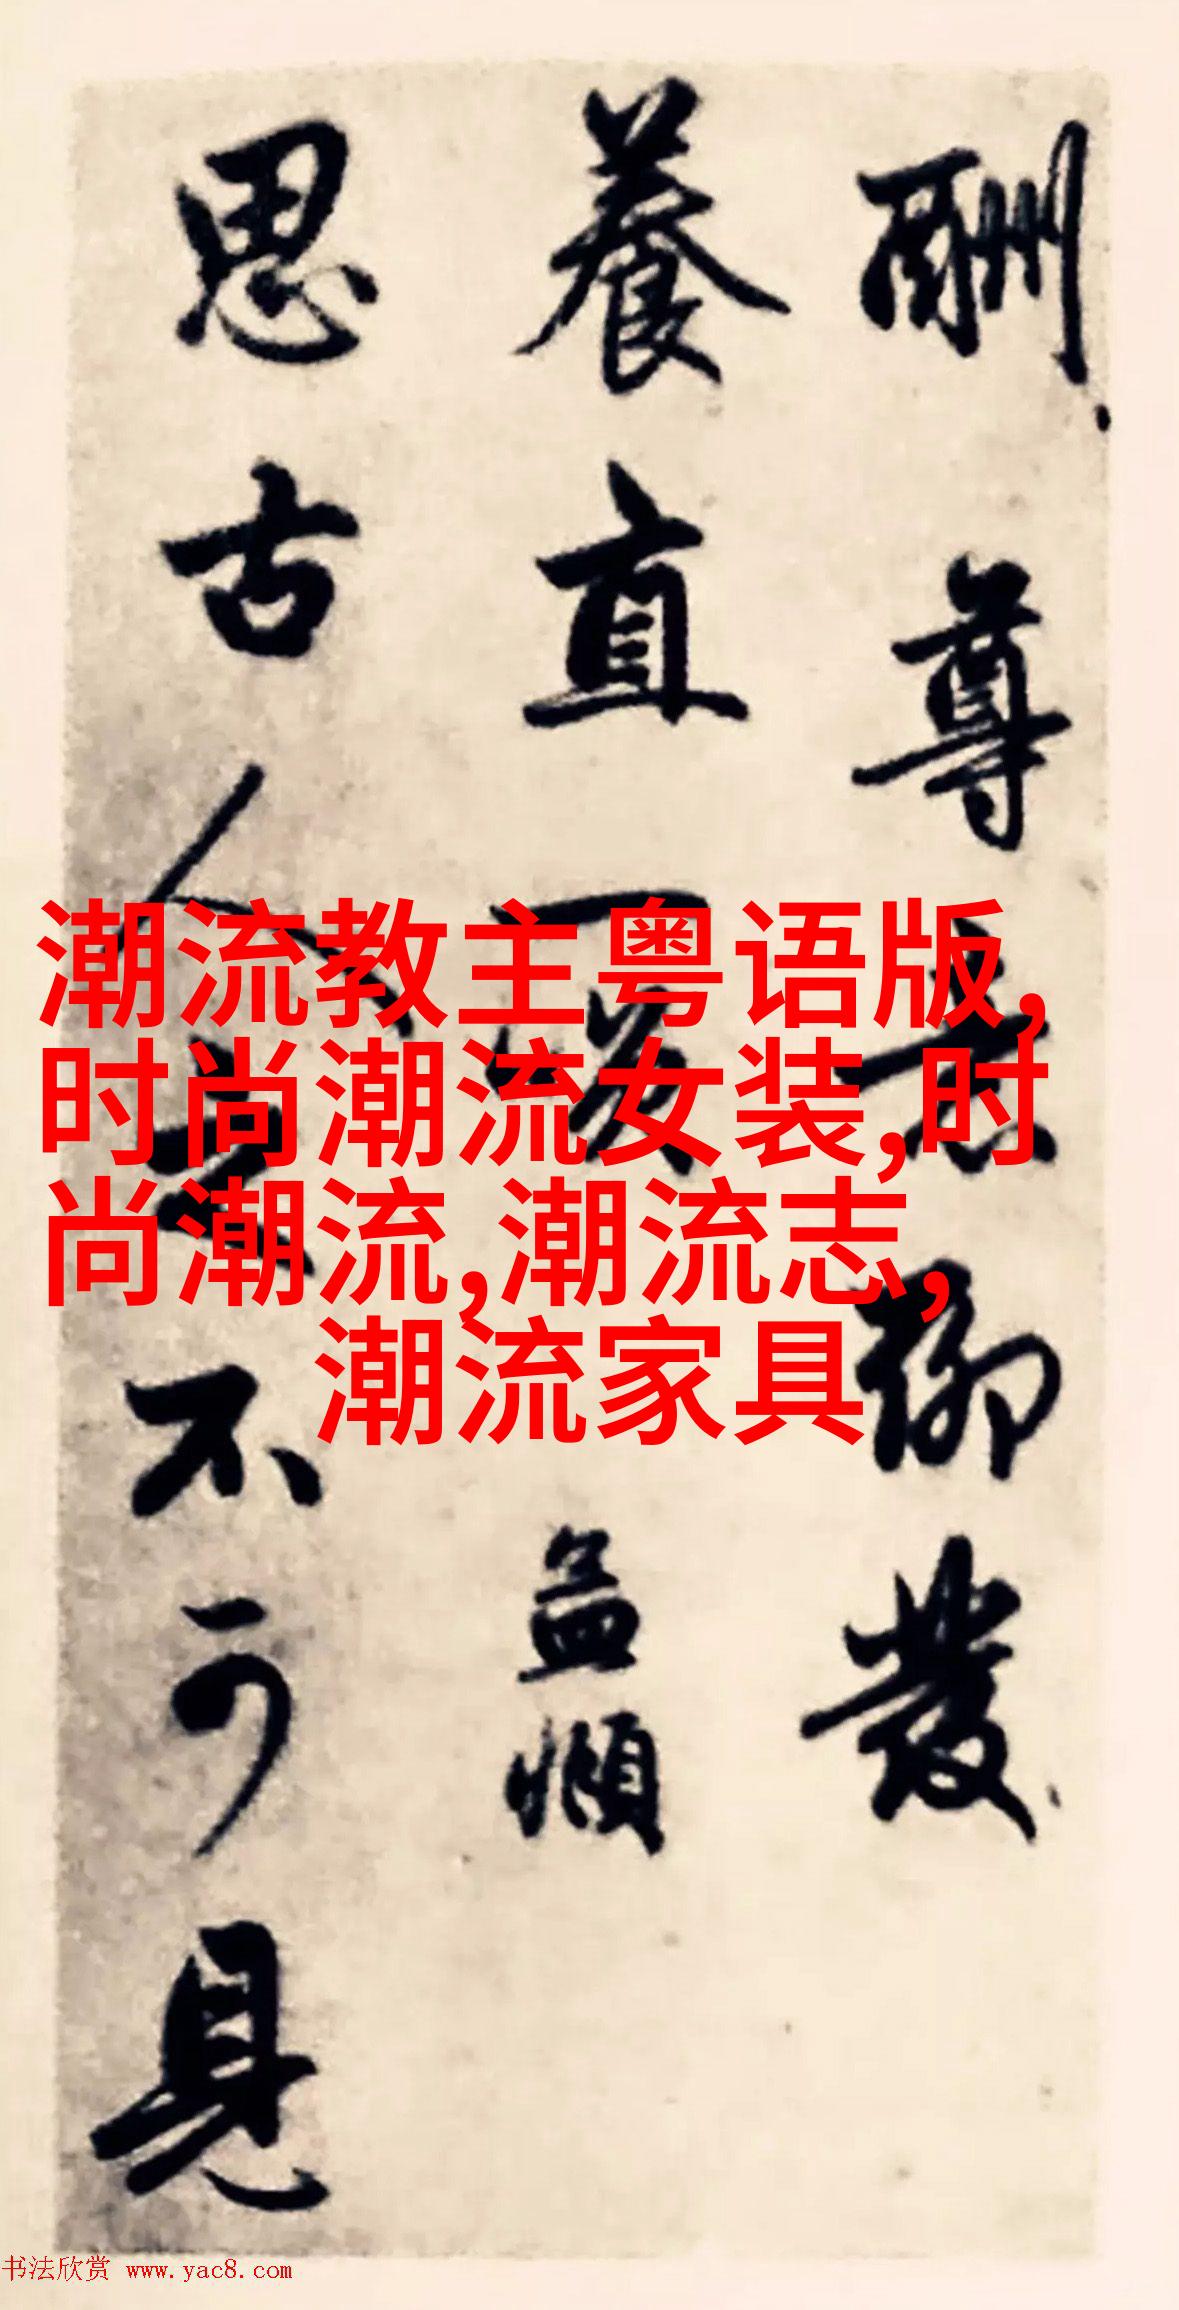 酬尊意聊發
養直一
孟頫
思古人
不可見
潮流教主粤语版,
时尚潮流女装,时
尚潮流,潮流志,
潮流家具
书法欣赏 www.yac8.com